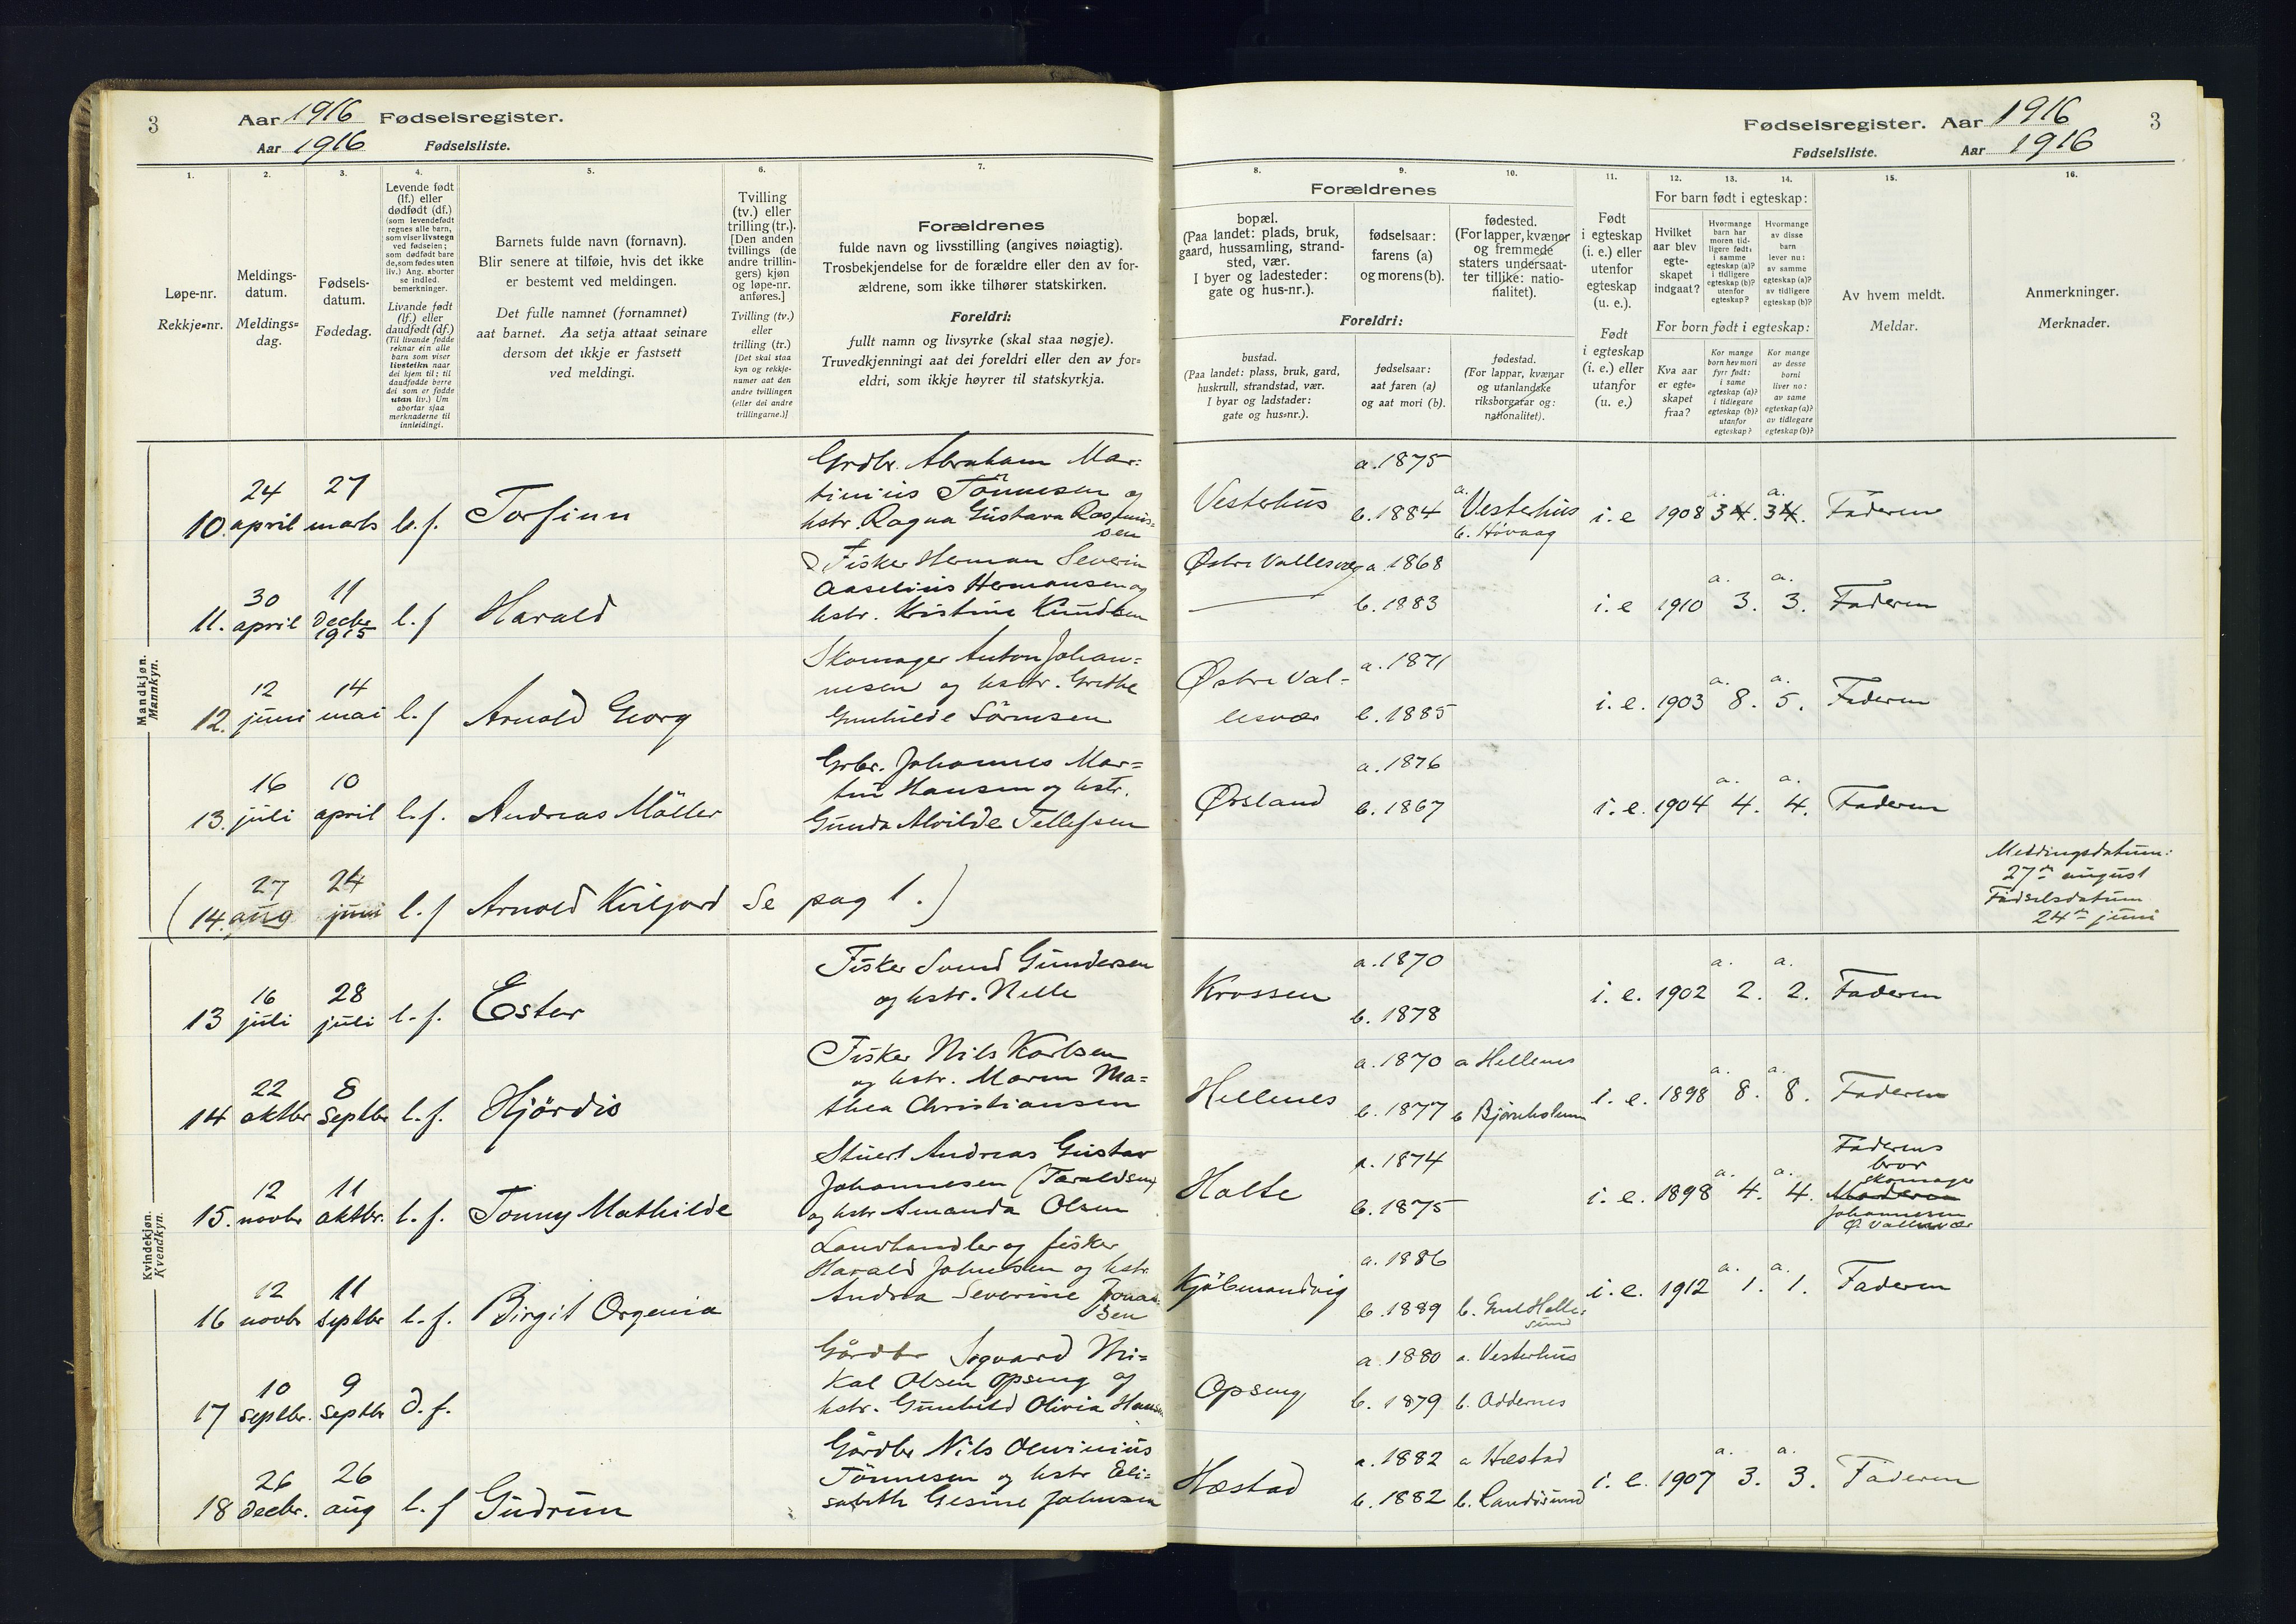 3
Aar 1916 Fødselsregister.
Aar 1916 Fødselsliste.
1.
Løpe-nr.
Rekkje-nr.
2.
Meldings-
datum.
Meldings-
dag.
3.
Fødsels-
datum.
Fødedag.
4.
Levende født
(lf.) eller
dødfødt (df.)
(som levendefødt
regnes alle barn,
som viser livstegn
ved fødselen;
som dødfødt bare
de, som fødes uten
liv.) Ang. aborter
se indled.
bemerkninger.
Livande født
(lf.) eller
daudfødt (df.)
(Til livande fødde
reknar ein alle
barn som viser
livsteikn naar
dei kjem til; til
daudfødde berre
dei som er fødde
utan liv.) Um
abortar sjaa
merknaderne til
innleidingi.
5.
Barnets fulde navn (fornavn).
Blir senere at tilføie, hvis det ikke
er bestemt ved meldingen.
Det fulle namnet (fornamnet)
aat barnet. Aa setja attaat seinare
dersom det ikkje er fastsett
ved meldingi.
6.
Tvilling
(tv.) eller
trilling (tr.).
[Den anden
tvillings (de
andre trillin-
gers) kjøn
og løpe-nr.
anføres.]
Tvilling (tv.)
eller
trilling (tr.)
[Det skal staa
kyn og rekkje-
numer aat den
andre tvillingen
(eller dei andre
trillingarne.)]
7.
Forældrenes
fulde navn og livsstilling (angives nøiagtig).
Trosbekjendelse for de forældre eller den av for-
ældrene, som ikke tilhører statskirken.
Foreldri:
fullt namn og livsyrke (skal staa nøgje).
Truvedkjenningi aat dei foreldri eller den av for-
eldri, som ikkje høyrer til statskyrkja.
Fødselsregister. Aar 1916
3
Fødselsliste. Aar 1916
8.
Forældrenes
bopæl.
(Paa landet: plads, bruk,
gaard, hussamling, strand-
sted, vær.
I byer og ladesteder:
gate og hus-nr.).
Foreldri:
bustad.
(Paa landet: plass, bruk, gard,
huskrull, strandstad, vær.
I byar og ladstader:
gate og hus-nr.).
9.
fødselsaar:
farens (a)
og morens (b).
fødselsaar:
aat faren (a)
og aat mori (b).
10.
fødested.
(For lapper, kvæner
og fremmede
staters undersaat-
ter tillike: natio-
nalitet).
fødestad.
(For lappar, kvænar
og utanlandske
riksborgarar og:
nationalitet).
11.
Født
i egteskap
(i. e.) eller
utenfor
egteskap
(u. e.).
Født
i egteskap
(i. e.) eller
utanfor
(u. e.)
12.
13.
14.
For barn født i egteskap:
Hvilket
aar blev
egte-
skapet
indgaat?
Hvormange
barn har
moren tid-
ligere født:
i samme
egteskap (a)?
i tidligere
egteskap (b)?
utenfor
egteskap?
Hvormange
av disse
barn
lever nu:
av samme
egteskap (a)?
av tidligere
egteskap (b)?
For born født i egteskap:
Kva aar
er egte-
skapet
fraa?
Kor mange
born hev mori
fyrr født:
i same
egteskap (a)?
i tidlegare
egteskap (b)?
utanfor
egteskap?
Kor mange
av desse
borni
liver no:
av same
egteskap (a)?
av tidlegare
egteskap (b)?
15.
Av hvem meldt.
Meldar.
16.
Anmerkninger.
Merknader.
Mandkjøn.
Mannkyn.
10. 24 april 27 marts l. f. Torfinn
Grdbr. Abraham Mar-
tinius Tönnesen og
hstr. Ragna Gustava Rasmus-
sen
Vesterhus a. 1875 b. 1884 a. Vesterhus b. Høvaag i. e 1908 a. 3 4. a. 3 4. Faderen
11. 30 april 11 decbr 1915 l. f Harald
Fisker Herman Severin
Aaselius Hermansen og
hstr. Kristine Knudsen
Østre Vallesvær a. 1868 b. 1883 i. e 1910 a. 3. a. 3. Faderen
12. 12 juni 14 mai l. f Arnold Georg
Skomager Anton Johan-
nesen og hstr. Grethe
Gunhilde Sörnsen
Østre Val-
lesvær a. 1871 b. 1885 i. e. 1903 a. 8. a. 5. Faderen
13. 16 juli 10 april l. f. Andreas Möller
Grbr. Johannes Mar-
tin Hansen og hstr.
Gunda Alvilde Tellefsen
Ørsland a. 1876 b. 1867 i. e. 1904 a. 4. a. 4. Faderen
(14. 27 aug 24 juni l. f Arnold Kviljord Se pag 1.)
Meldingsdatum:
27de august
Fødselsdatum
24de juni
Kvindekjøn.
Kvendkyn.
13 16 juli 28 juli l. f. Ester
Fisker Svend Gundersen
og hstr. Nelle
Krossen a. 1870 b. 1878 i. e. 1902 a. 2. a. 2. Faderen
14 22 oktbr 8 septbr l. f. Hjördis
Fisker Nils Karlsen
og hstr. Maren Ma-
thea Christiansen
Hellenes a. 1870 b. 1877 a Hellenes b Bjørnholmen i. e. 1898 a. 8. a. 8. Faderen
15. 12 novbr 11 oktbr. l. f. Tonny Mathilde
Stuert Andreas Gustav
Johannesen (Taraldsen)
og hstr Amanda Olsen
Holte a. 1874 b. 1875 i. e. 1898 a. 4. a. 4. Faderens
bror
skomager
Moderen
Johannesen
Ø. Vallesvær
16 12 novbr 11 septbr l. f. Birgit Orgenia
Landhandler og fisker
Harald Johnsen og hstr.
Andrea Severine Jonas-
sen
Kjöbmandvig a. 1886 b. 1889 b. Gml Helle-
sund i. e. 1912 a. 1. a. 1. Faderen
17 10 septbr. 9 septbr d. f.
Gårdbr Sigvard Mi-
kal Olsen Opseng og
hstr. Gunhild Olivia Hansen
Opseng a. 1880 b. 1879 a. Vesterhus b. Oddernes
18 26 decbr. 26 aug l. f Gudrun
Gårdbr Nils Oluvinius
Tönnesen og hstr Eli-
sabeth Gesine Johnsen
Hæstad a. 1882 b. 1882 a Hæstad b. Randösund i. e. 1907 a. 3. a. 3. Faderen